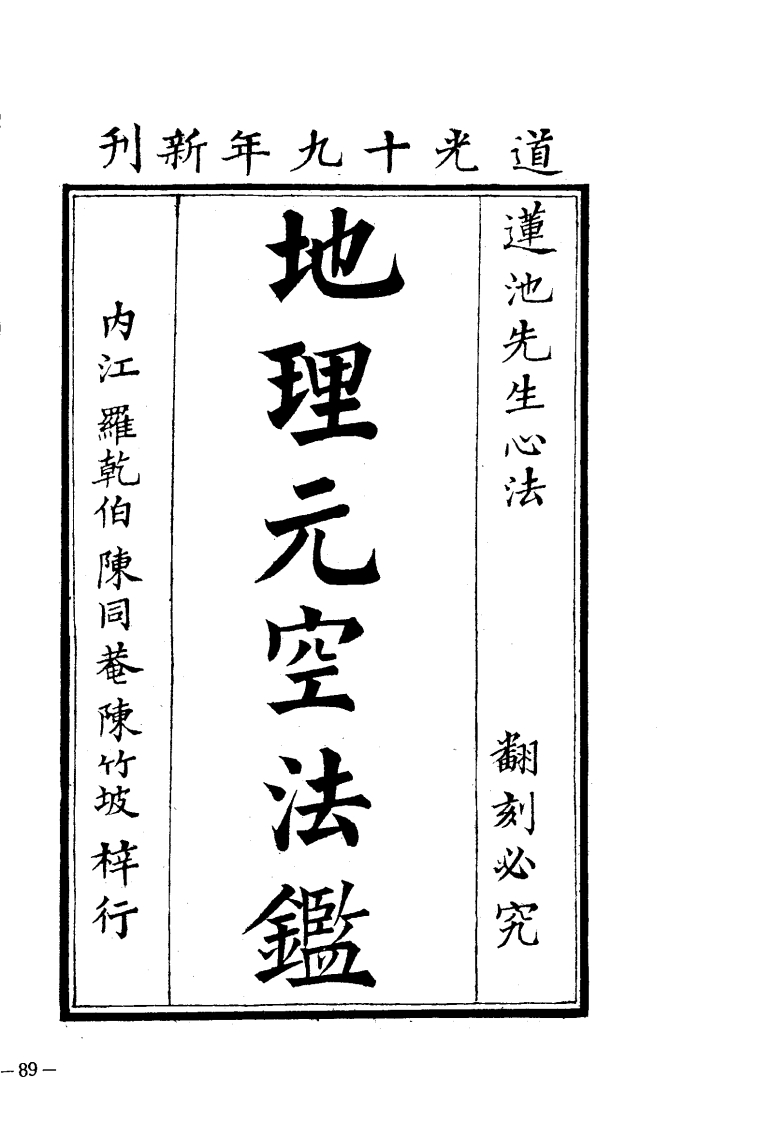 道光十九年新刊
蓮池先生心法
翻刻必究
地理元空法鑑
内江 羅乾伯 陳同菴 陳竹坡 梓行
—89—